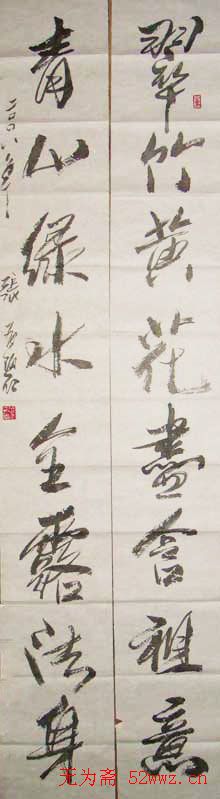 翠竹黄花盡含雅意
青山绿水全露法身
二〇〇八年
張
无为斋 52wwz.cn